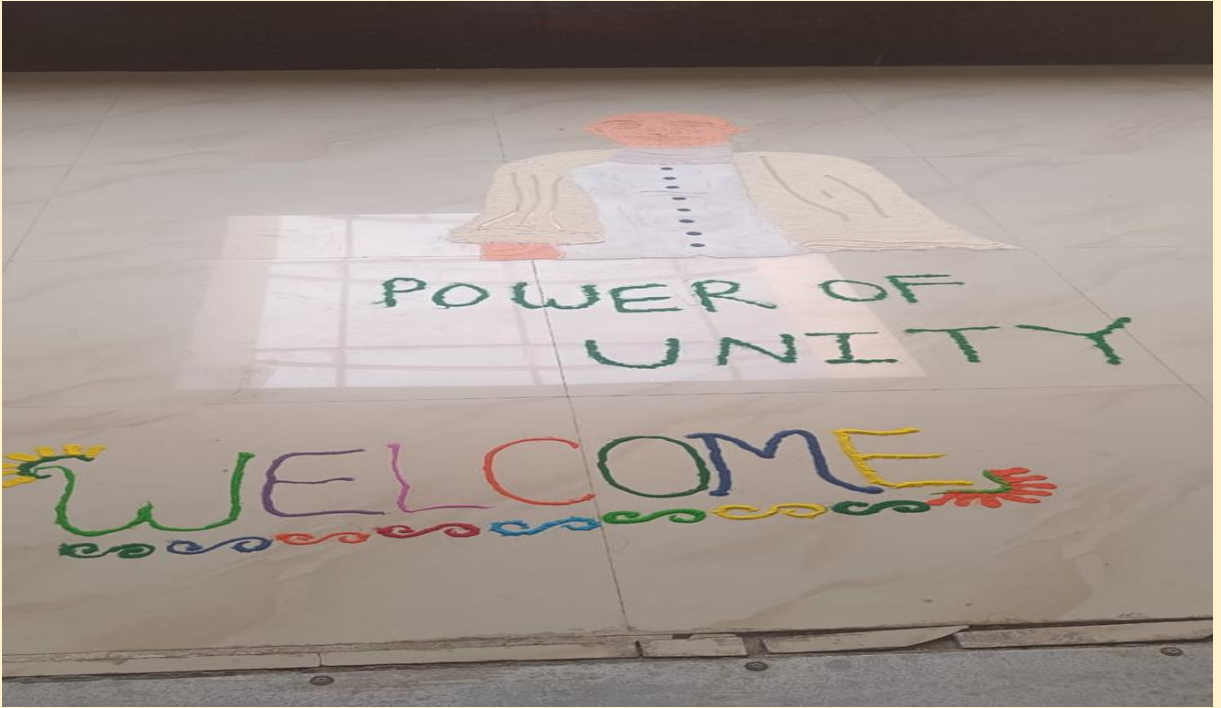 POWER OF
UNITY
WELCOME